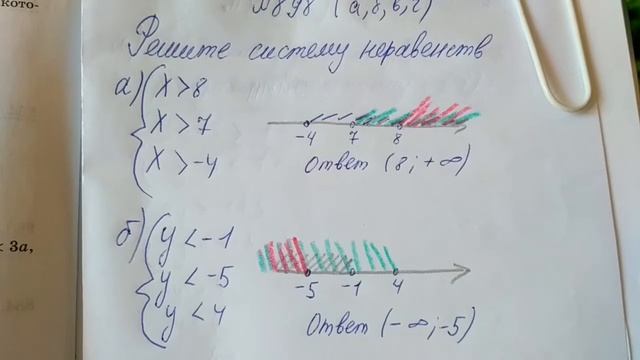 кото-
№898 (а,б,в,г)
Решите систему неравенств
а) { x > 8
x > 7
x > -4
-4 7 8
Ответ (8; +∞)
б) { y < -1
y < -5
y < 4
-5 -1 4
Ответ (-∞; -5)
< 3a,